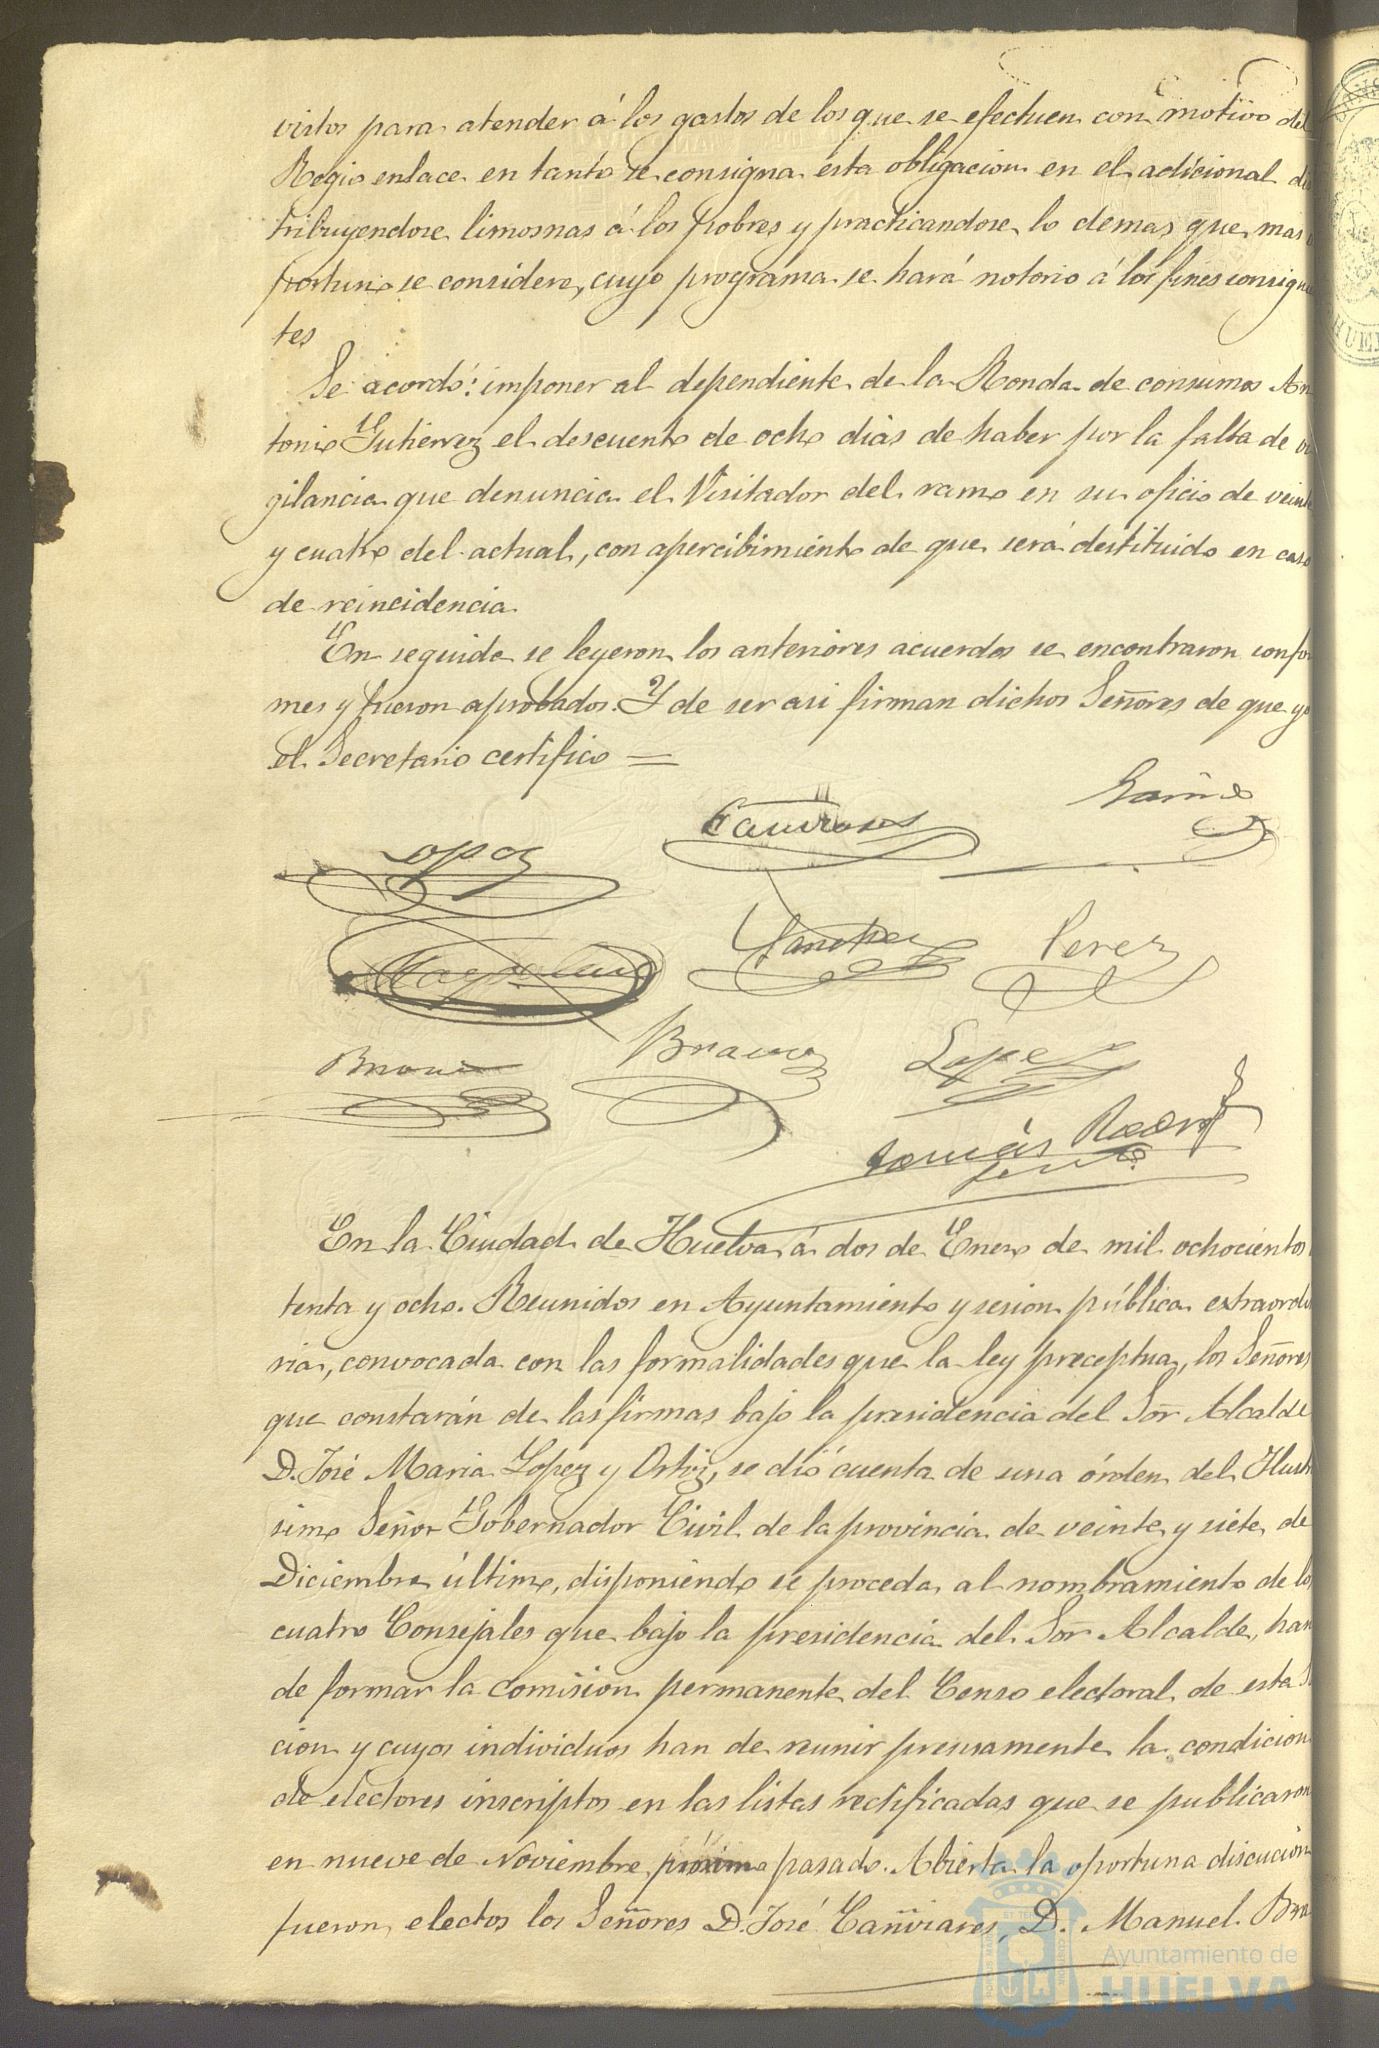 vistos para atender á los gastos de los que se efectuen con motivo del
Regio enlace en tanto se consigna esta obligacion en el adicional dis
tribuyendose limosnas á los pobres y practicandose lo demas que mas o
portuno se considere, cuyo programa se hará notorio á los fines consiguien
tes
Se acordó: imponer al dependiente de la Ronda de consumos An
tonio Gutierrez el descuento de ocho dias de haber por la falta de vi
gilancia que denuncia el Visitador del ramo en su oficio de veinte
y cuatro del actual, con apercibimiento de que será destituido en caso
de reincidencia
En seguida se leyeron los anteriores acuerdos se encontraron confor
mes y fueron aprobados. Y de ser asi firman dichos Señores de que yo
el Secretario certifico =
Garrido
Cañivares
Lopez
Sanchez
Perez
Bravo
Lopez
Tomás
En la Ciudad de Huelva á dos de Enero de mil ochocientos
tenta y ocho. Reunidos en Ayuntamiento y sesion pública extraordi
ria, convocada con las formalidades que la ley preceptua, los Señores
que constarán de las firmas bajo la presidencia del Sor Alcalde
D. José Maria Lopez y Ortiz, se dió cuenta de una órden del Ilustri
simo Señor Gobernador Civil de la provincia de veinte y siete de
Diciembre último, disponiendo se proceda al nombramiento de los
cuatro Consejales que bajo la presidencia del Sor Alcalde, han
de formar la Comision permanente del Censo electoral de esta
cion y cuyos individuos han de reunir precisamente la condicion
de electores inscriptos en las listas rectificadas que se publicaron
en nueve de Noviembre próximo pasado. Abierta la oportuna discucion
fueron electos los Señores D. José Cañivares, D. Manuel Bra
Ayuntamiento de
HUELVA